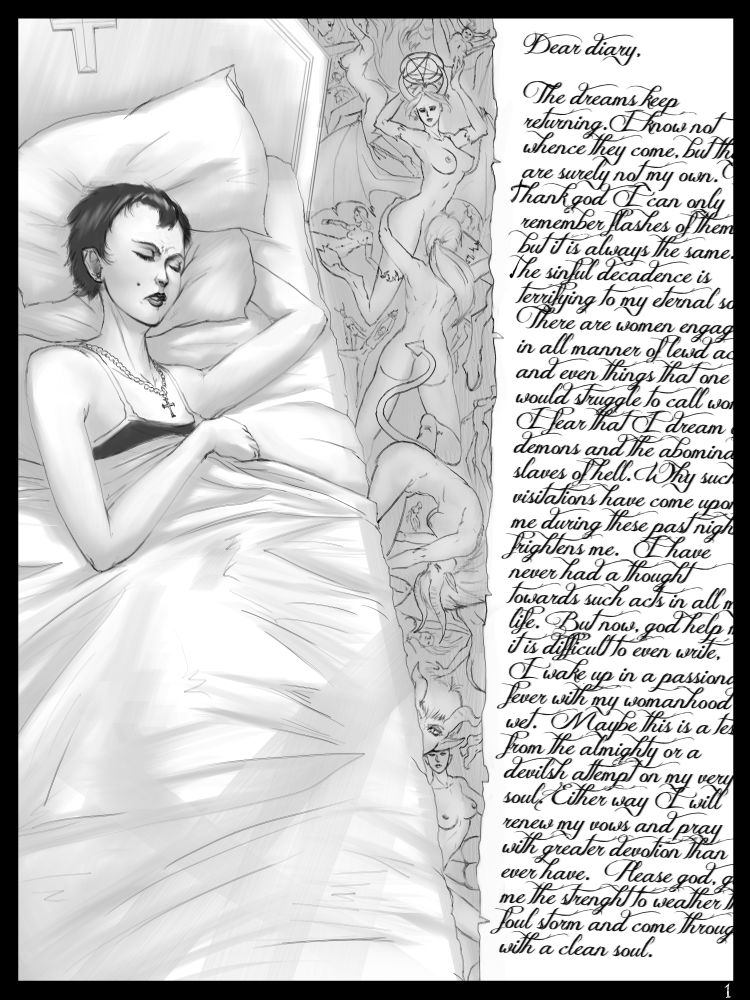 Dear diary,
The dreams keep
returning. I know not
whence they come, but
are surely not my own.
Thank god I can only
remember flashes of them
but it is always the same.
The sinful decadence is
terrifying to my eternal
There are women
in all manner of lewd
and even things that one
would struggle to call
I fear that I dream
demons and the
slaves of hell. Why
visitations have come
me during these past
frightens me. I have
never had a thought
towards such acts in all
life. But now, god help
it is difficult to even write,
I wake up in a
fever with my womanhood
wet. Maybe this is a
from the almighty or a
devilsh attempt on my very
soul. Either way I will
renew my vows and pray
with greater devotion than
ever have. Please god,
me the strenght to weather
foul storm and come
with a clean soul.
1